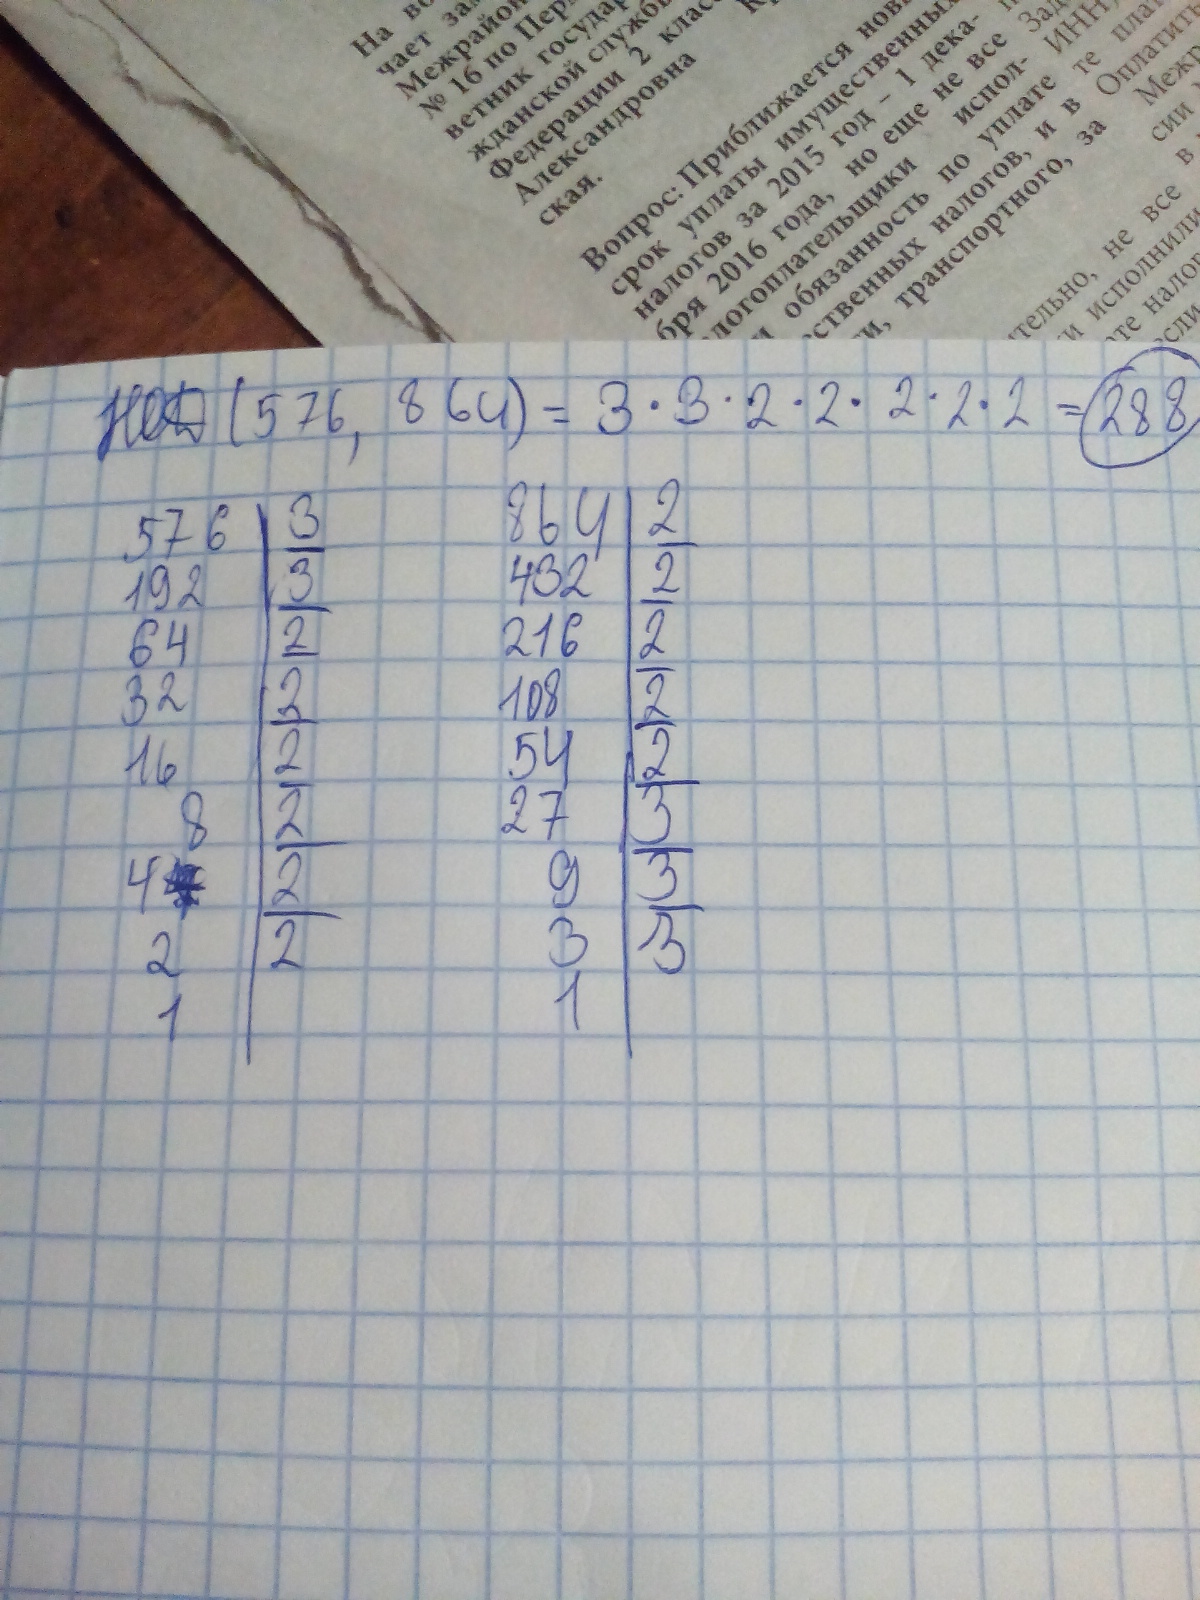 На во
чает зам
Межрайон
№ 16 по Перм
ветник государ
жданской служб
Федерации 2 класс
Александровна
ская.
Вопрос: Приближается новы
срок уплаты имущественных
налогов за 2015 год – 1 дека-
бря 2016 года, но еще не все
логоплательщики испол-
и обязанность по уплате
ственных налогов, и в
и, транспортного, за
Зад
ИНН)
те плат
Оплатить
Межр
сии
в
тельно, не все
ки исполнили
ате налог
если
НОД (576, 864) = 3·3·2·2·2·2·2 = 288
576 3 864 2
192 3 432 2
64 2 216 2
32 2 108 2
16 2 54 2
8 2 27 3
4 2 9 3
2 2 3 3
1 1